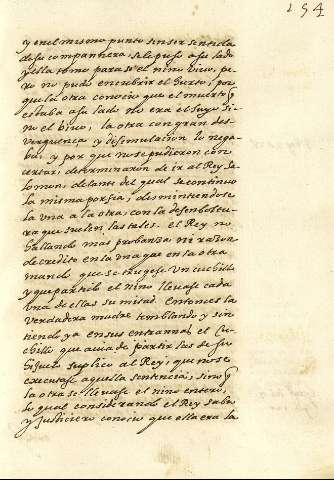 154
y en el mismo punto sin ser sentida
de su compannera, se le puso a su lado
y ella tomo para si el nino vivo, pe
ro no pudo encubrir el hurto, por
que la otra conocio que el muerto q
estaba a su lado no era el suyo si
no el bivo, la otra con gran des
verguença y desimulacion lo nega
ba, y por que no se pudieron con
certar, determinaron de ir al Rey Sa
lomon, delante del qual se continuo
la misma porfia, desmintiendose
la una a la otra, con la desenboltu
ra que suelen las tales. el Rey no
hallando mas probanza ni razon
de credito en la una que en la otra
mando que se trugese un cuchillo
y que partido el nino llevase cada
una de ellas su mitad. Entonces la
verdadera madre temblando y sin
tiendo ya en sus entrannas el Cu
chillo que avia de partir las de su
hijuelo suplico al Rey, que no se
executase aquella sentencia, sino q
la otra se llevase el nino entero,
lo qual considerando el Rey sabio
y Justiciero conocio que ella era la